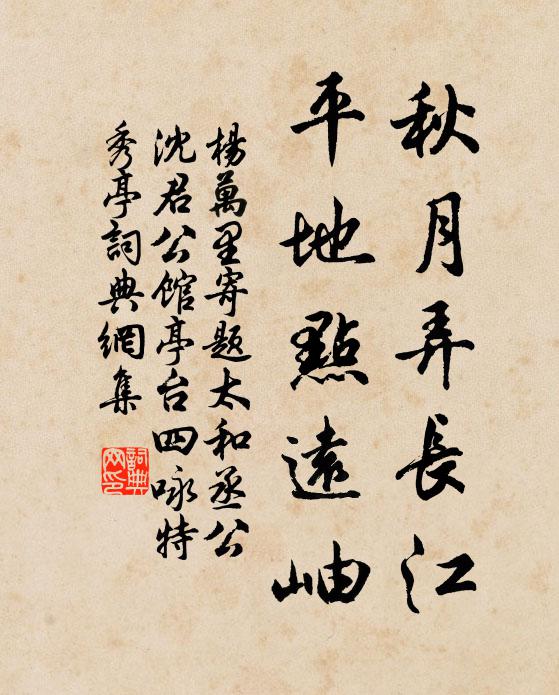 秋月弄長江
平地點遠岫
楊萬里寄題太和丞公
沈君公館亭台四咏特
秀亭詞典網集
詞典
网印